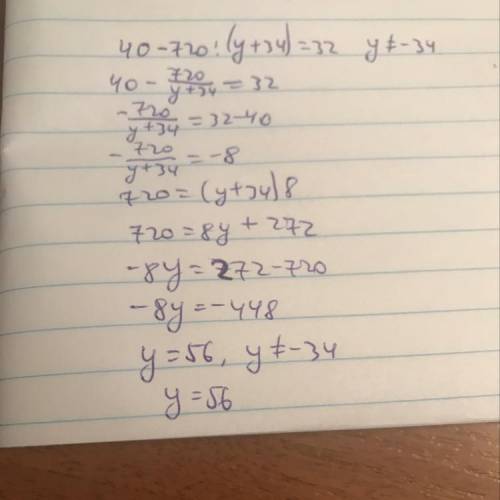 40-720:(y+34)=32 y≠-34
40-720/y+34=32
-720/y+34=32-40
-720/y+34=-8
720=(y+34)8
720=8y+272
-8y=272-720
-8y=-448
y=56, y≠-34
y=56